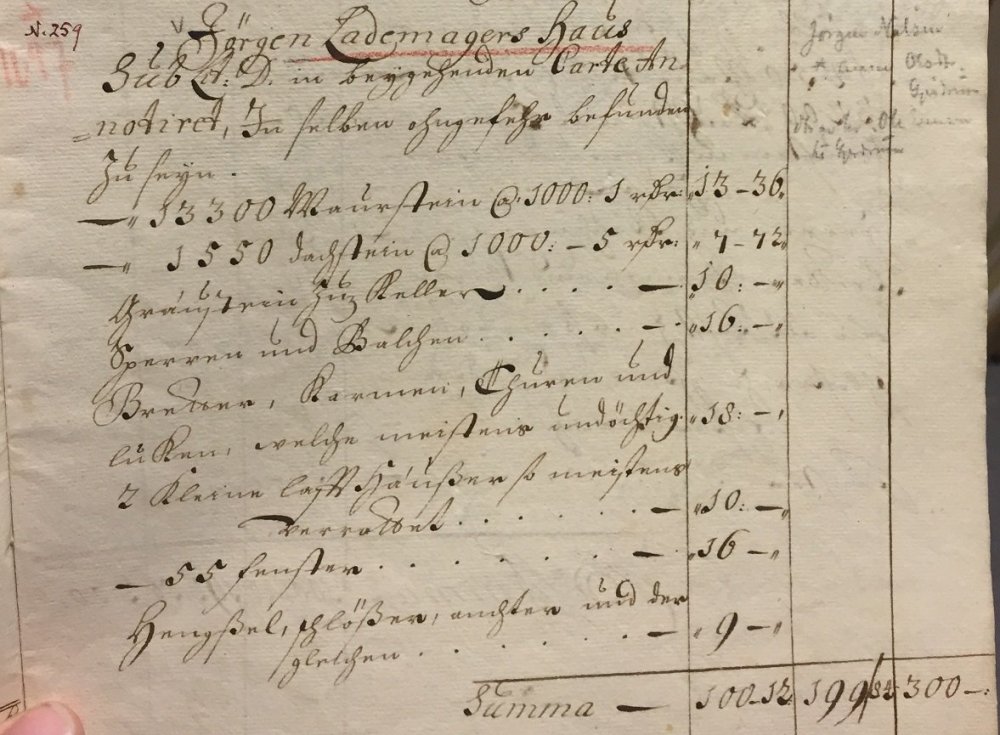 N. 259
Jörgen Lademagers Haus
Sub Lit: D. in beygehenden Carte An=
=notiret, In selben ohngefehr befunden
Zu seyn.
— " 13300 Maurstein @ 1000: 1 rdr: " 13 - 36 "
— " 1550 dachstein @ 1000: - 5 rdr: " 7 - 72 "
Graustein zum Keller . . . . — " 10: - "
Sperren und Balchen . . . . . — " 16: - "
Bretter, Karmen, Thüren und
luken, welche meistens undöchtig. " 18: - "
2 Kleine Häußer so meistens
verrottet . . . . . . — " 10: - "
— 55 fenster . . . . . . . — " 16 - "
Hengßel, schlößer, anchter und der
gleichen . . . . . . . — " 9 - "
Summa — 100 - 12: 199 84 300 -:
Jörgen